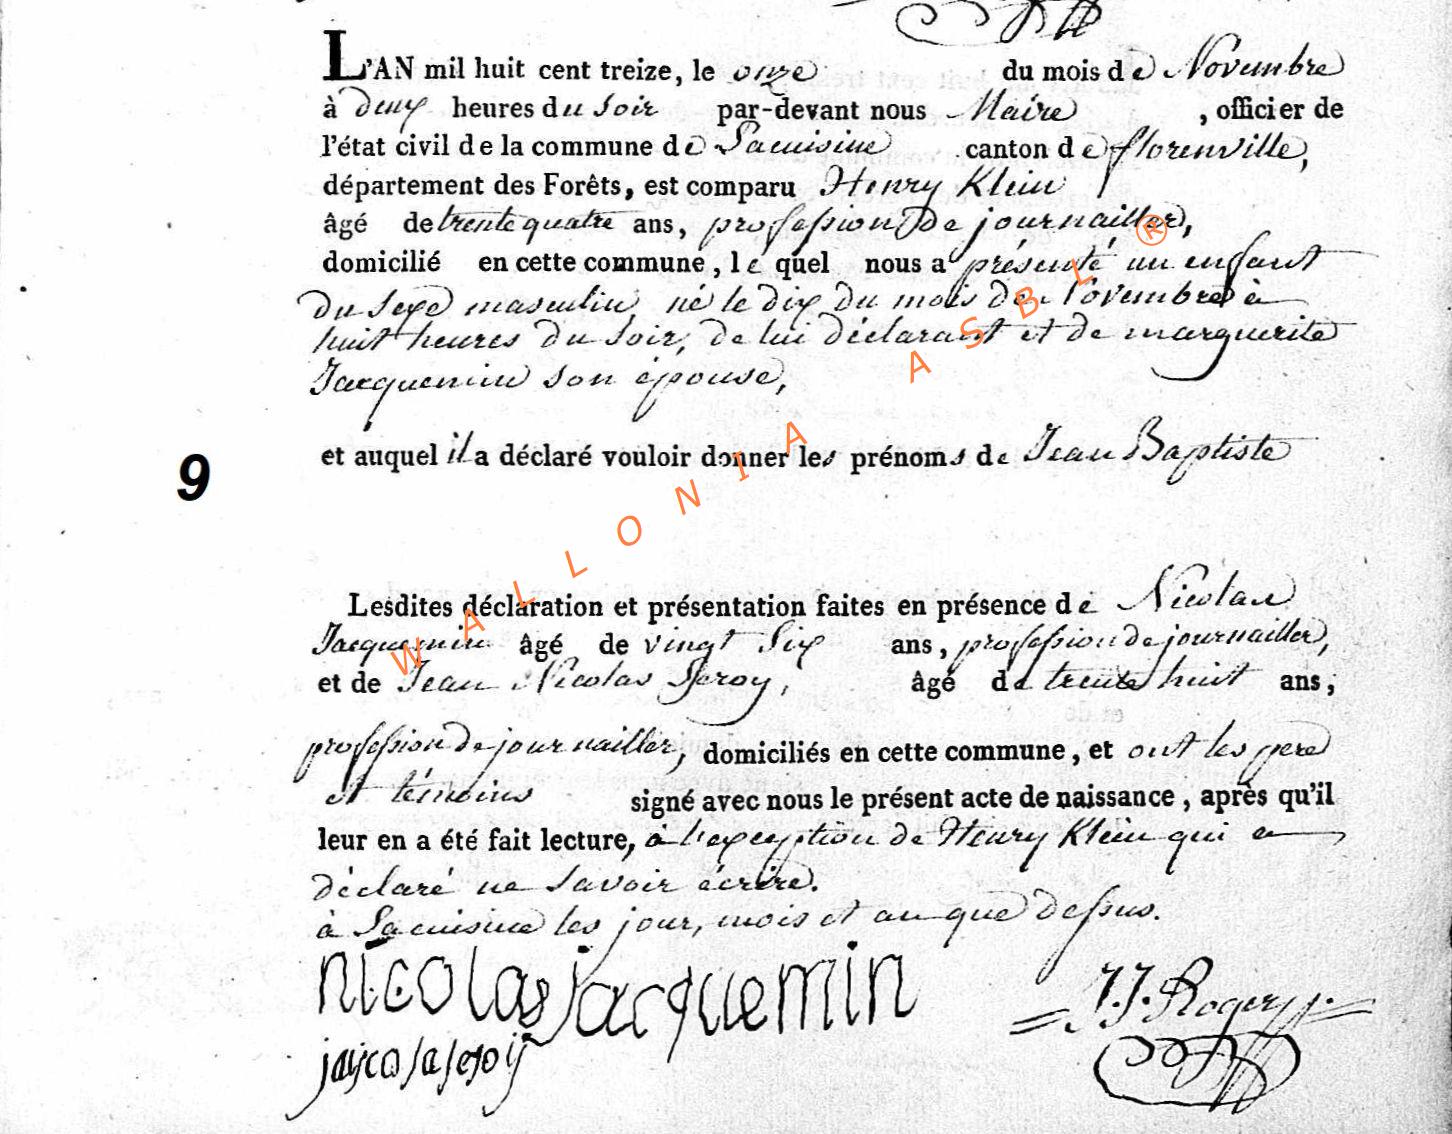 L'AN mil huit cent treize, le onze du mois de Novembre
à deux heures du Soir par-devant nous Maire , officier de
l'état civil de la commune de Lacuisine canton de florenville,
département des Forêts, est comparu Henry Klein
âgé de trente quatre ans, profession De journailler,
domicilié en cette commune, le quel nous a présenté un enfant
du Sexe masculin, né le dix Du mois De Novembre à
huit heures Du Soir, de lui Déclarant et de marguerite
Jacquemin son épouse,
et auquel il a déclaré vouloir donner les prénoms de Jean Baptiste
9
Lesdites déclaration et présentation faites en présence de Nicolas
Jacquemin âgé de vingt Six ans, profession De journailler,
et de Jean Nicolas Leroy, âgé de trente huit ans,
profession De journailler, domiciliés en cette commune, et ont les pere
et témoins signé avec nous le présent acte de naissance, après qu'il
leur en a été fait lecture, à l'exception de Henry Klein qui a
déclaré ne Savoir écrire.
à Lacuisine les jour, mois et an que Dessus.
nicolas jacquemin
J.J. Roger
WALLONIA ASBL ®